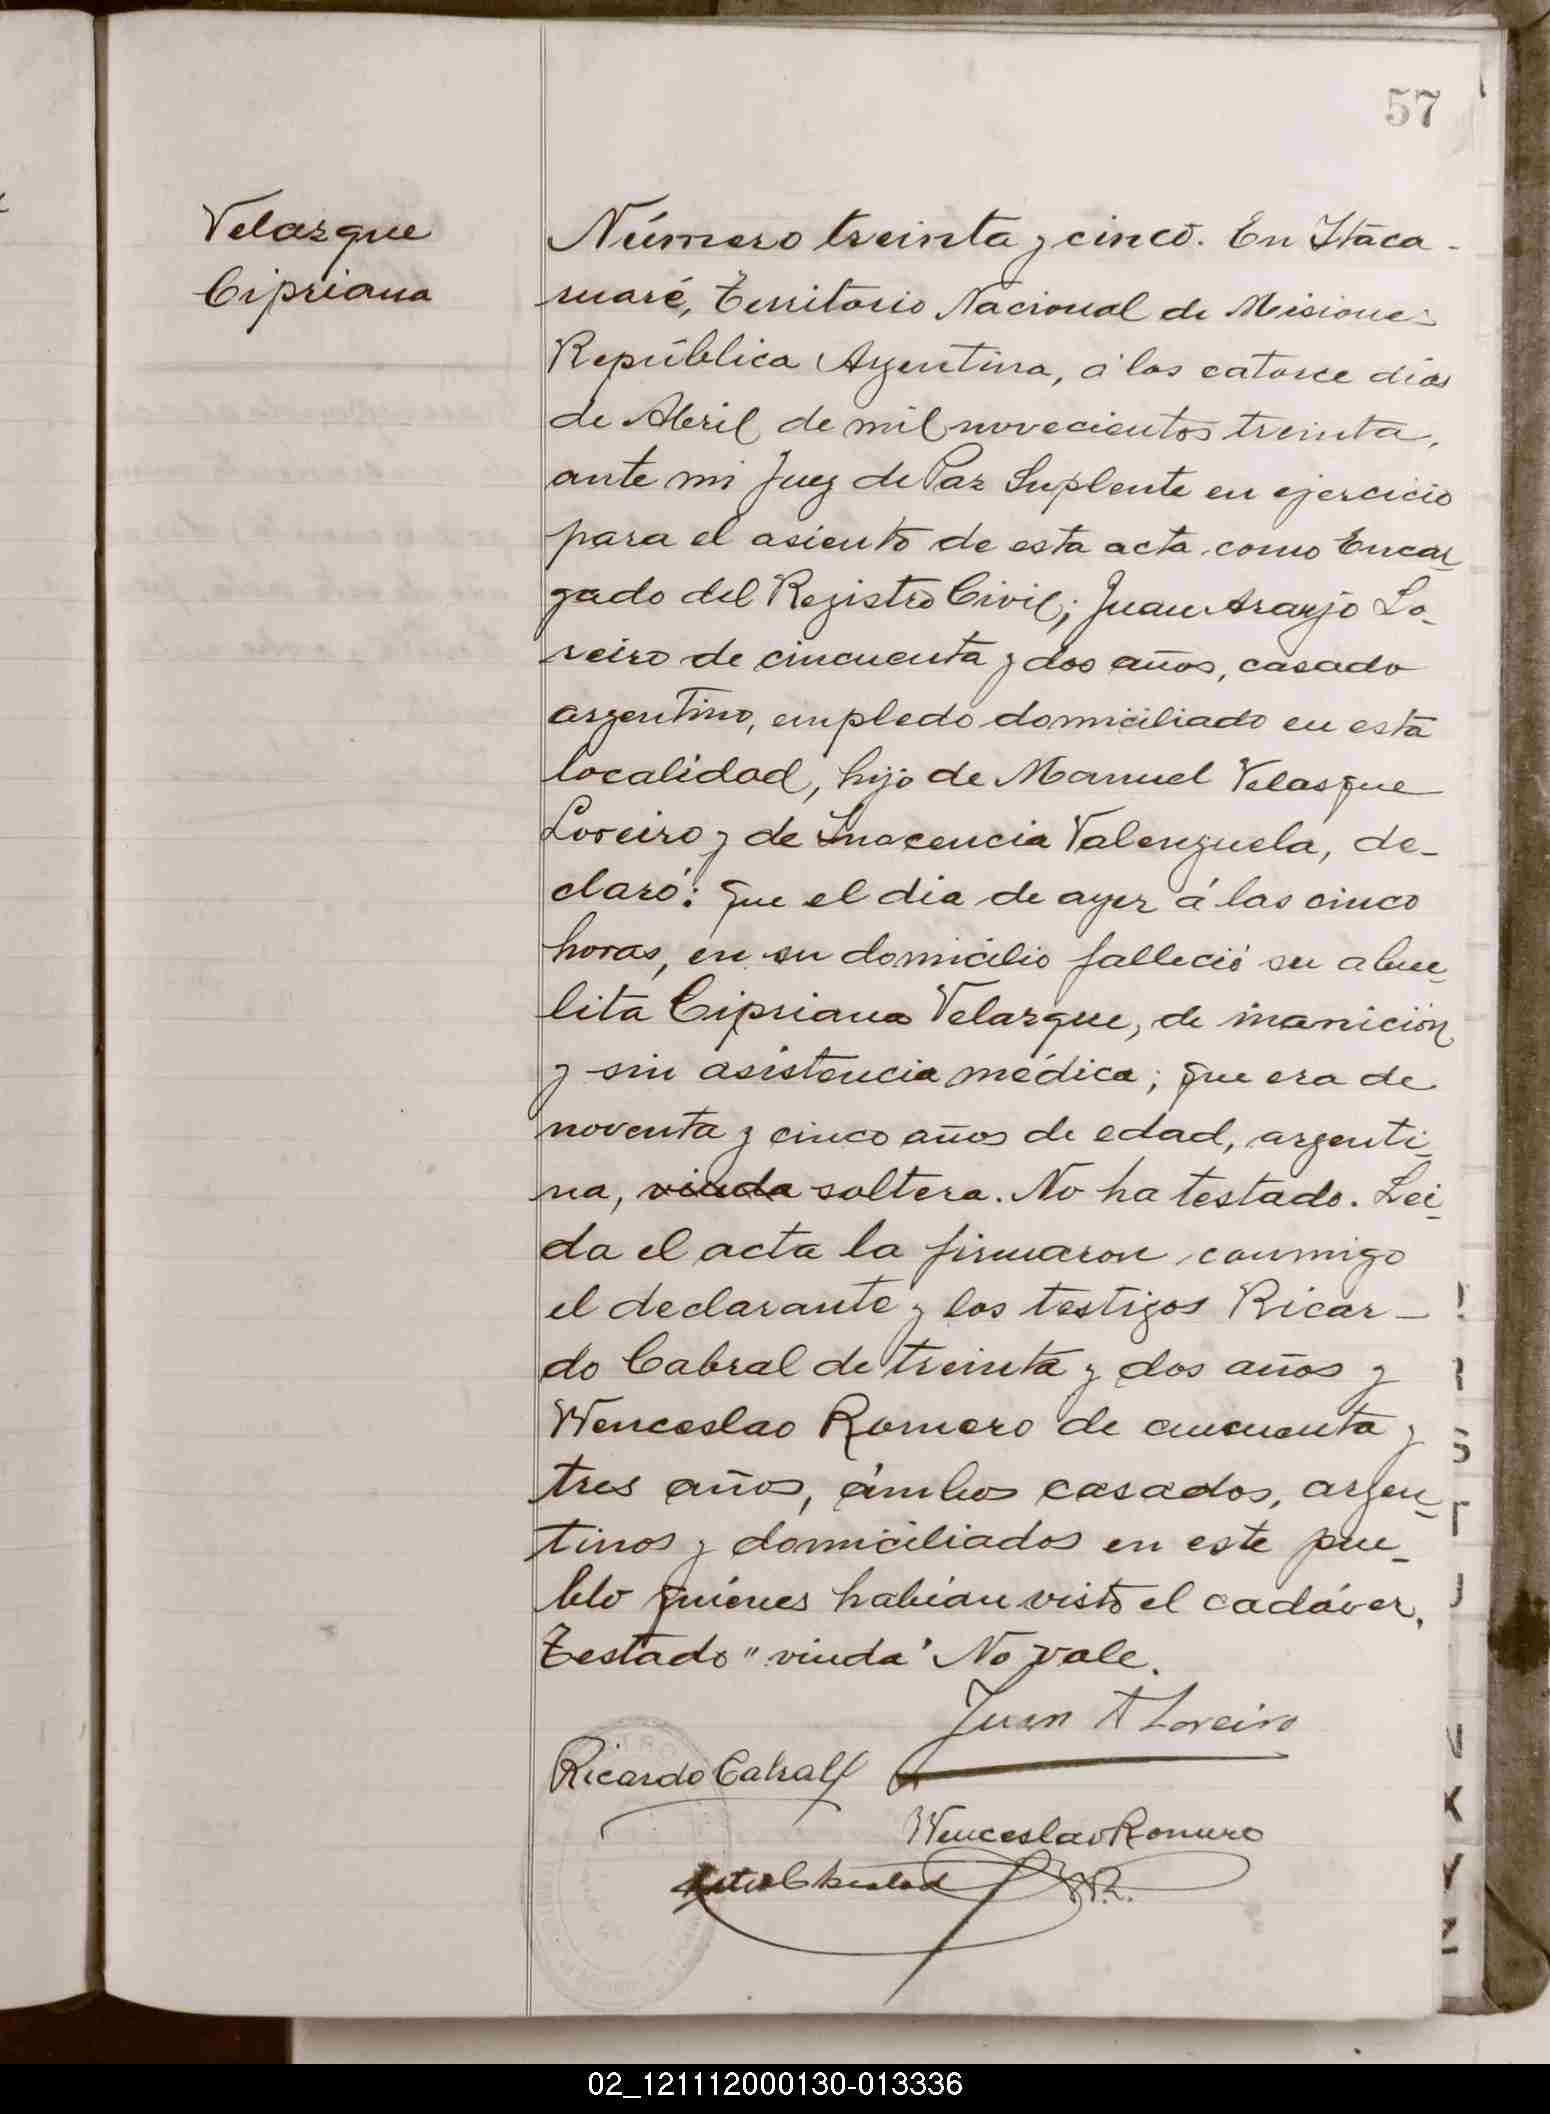 57
Velazque
Cipriana
Número treinta y cinco. En Itaca-
ruaré, Territorio Nacional de Misiones
República Argentina, á los catorce días
de Abril de mil novecientos treinta,
ante mi Juez de Paz Suplente en ejercicio
para el asiento de esta acta como Encar-
gado del Registro Civil; Juan Araujo Lo-
reiro de cincuenta y dos años, casado
argentino, empledo domiciliado en esta
localidad, hijo de Manuel Velasque
Loreiro y de Inocencia Valenzuela, de-
claró: que el dia de ayer á las cinco
horas, en su domicilio falleció su abue-
lita Cipriana Velazque, de inanición
y sin asistencia médica; que era de
noventa y cinco años de edad, argenti-
na, viuda soltera. No ha testado. Lei-
da el acta la firmaron conmigo
el declarante y los testigos Ricar-
do Cabral de treinta y dos años y
Wenceslao Romero de cincuenta y
tres años, ámbos casados, argen-
tinos y domiciliados en este pue-
blo quiénes habían visto el cadáver.
Testado "viuda" No vale.
Juan A Loreiro
Ricardo Cabral
Wenceslao Romero
W R.
S
T
J
U
X
Y
Z
02_121112000130-013336